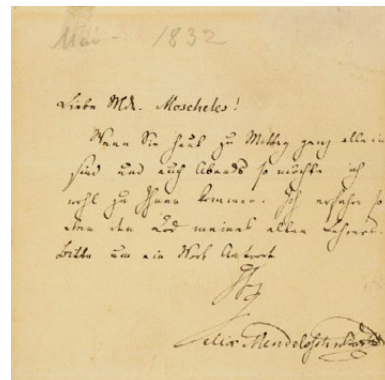 Mai - 1832
Liebe Md. Moscheles!
Wenn Sie heut zu Mittag ganz allein
sind und auch Abends so möchte ich
wohl zu Ihnen kommen. Ich erfahre so
eben den Tod meines alten Lehrers.
Bitte um ein Wort Antwort
Ihr
Felix Mendelssohn Bartholdy